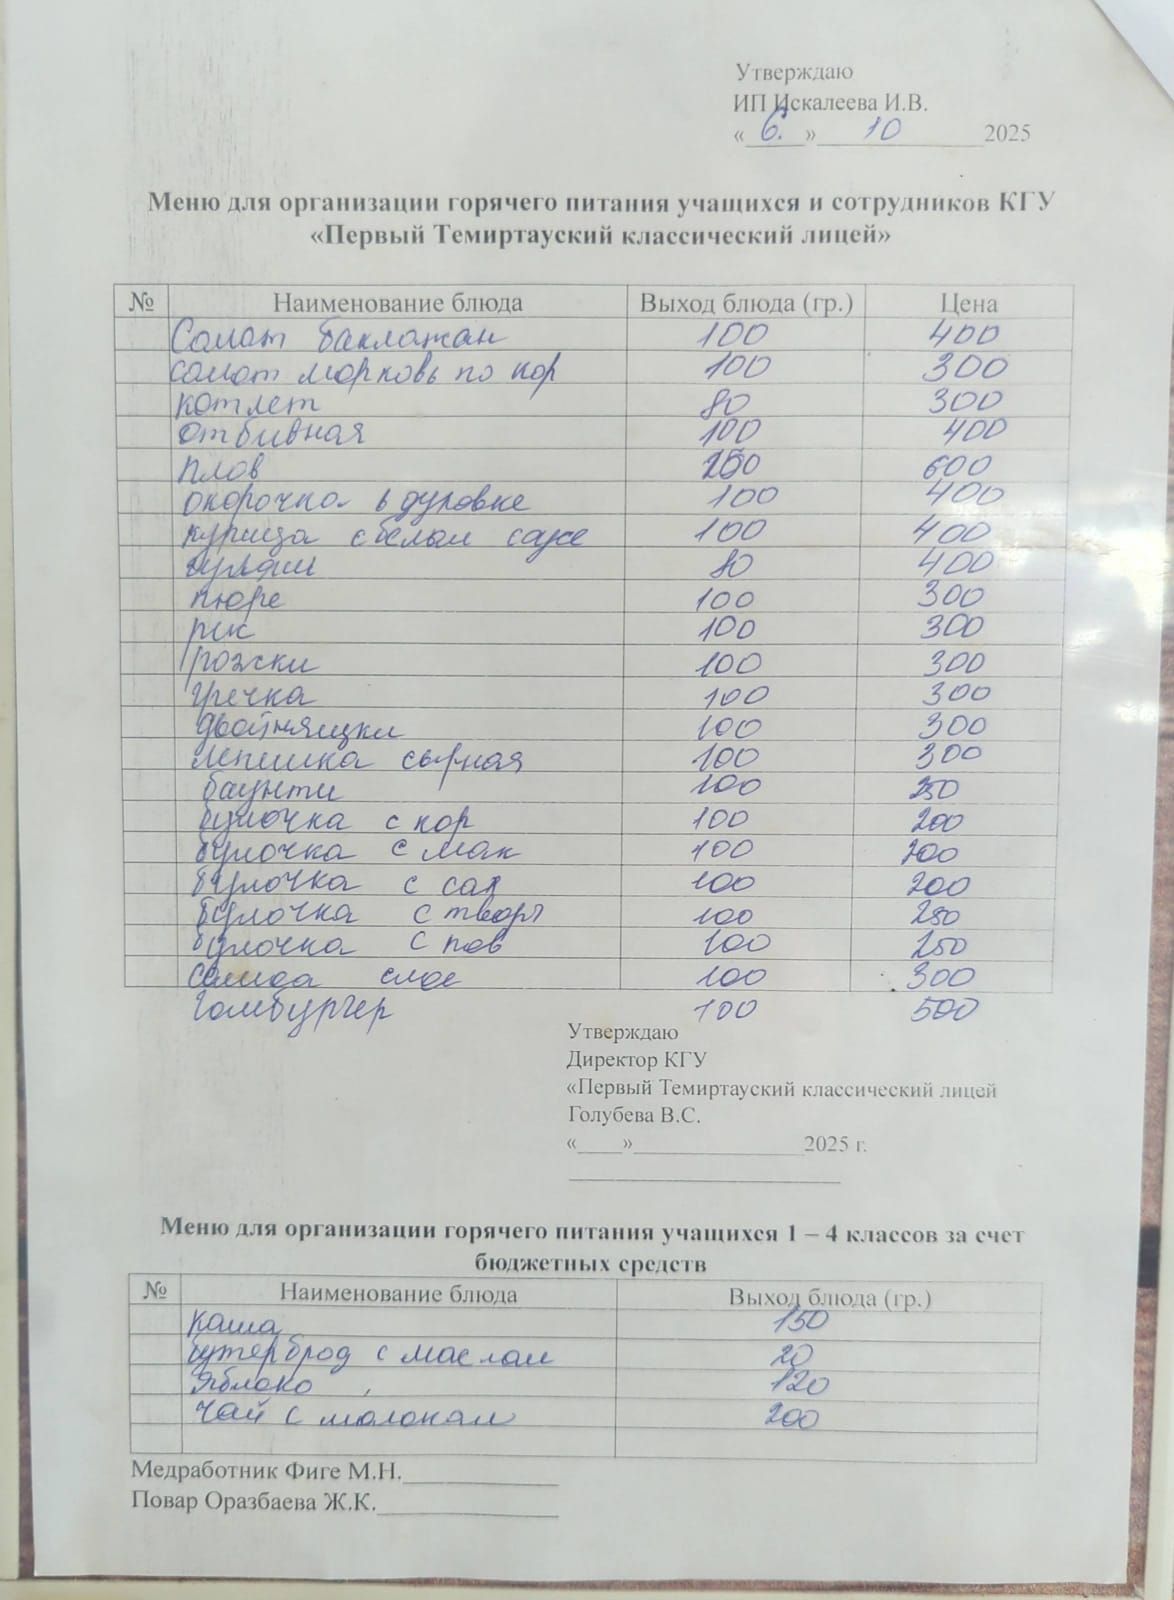 Утверждаю
ИП Искалеева И.В.
« 6. » 10 2025
Меню для организации горячего питания учащихся и сотрудников КГУ
«Первый Темиртауский классический лицей»
№ Наименование блюда Выход блюда (гр.) Цена
Салат баклажан 100 400
салат морковь по кор 100 300
котлет 80 300
отбивная 100 400
плов 250 600
окорочка в духовке 100 400
курица с белом соусе 100 400
80 400
пюре 100 300
рис 100 300
рожки 100 300
гречка 100 300
двойняшки 100 300
лепешка сырная 100 300
баунти 100 250
булочка с кор 100 200
булочка с мак 100 200
булочка с сах 100 200
булочка с творг 100 250
булочка с пов 100 250
самса слое 100 300
Гамбургер 100 500
Утверждаю
Директор КГУ
«Первый Темиртауский классический лицей
Голубева В.С.
«____»_______________2025 г.
Меню для организации горячего питания учащихся 1 – 4 классов за счет
бюджетных средств
№ Наименование блюда Выход блюда (гр.)
каша 150
бутерброд с маслом 20
яблоко 120
чай с молоком 200
Медработник Фиге М.Н.
Повар Оразбаева Ж.К.